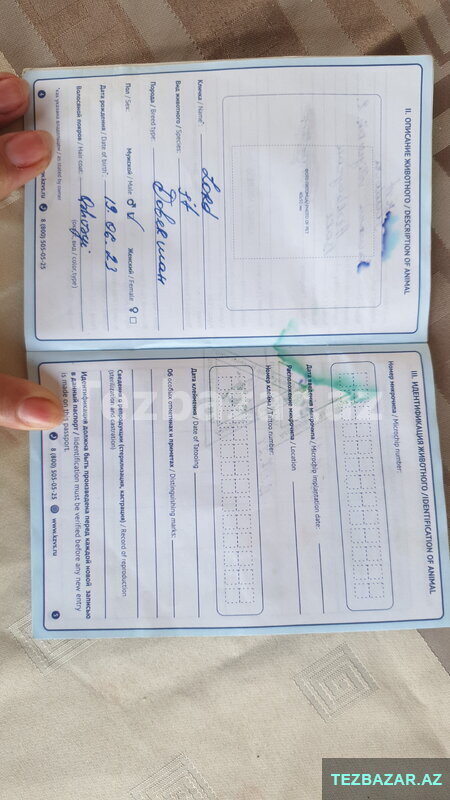 II. ОПИСАНИЕ ЖИВОТНОГО / DESCRIPTION OF ANIMAL
Кличка / Name*: Lord
Вид животного / Species: It
Порода / Breed type: Доберман
Пол / Sex: Мужской / Male ♂ ✓ Женский / Female ♀ □
Дата рождения / Date of birth*: 19.06.23
Волосяной покров / Hair coat:
(окрас, вид / color, type)
*как указано владельцем / as stated by owner
4
8 (800) 505-05-25
III. ИДЕНТИФИКАЦИЯ ЖИВОТНОГО / IDENTIFICATION OF ANIMAL
Номер микрочипа / Microchip number:
Дата введения микрочипа / Microchip implantation date:
Расположение микрочипа / Location
Номер клейма / Tattoo number:
Дата клеймения / Date of Tattooing
Об особых отметинах и приметах / Distinguishing marks:
Сведения о репродукции (стерилизация, кастрация) / Record of reproduction
(sterilization and castration)
Идентификация должна быть произведена перед каждой новой записью
в данный паспорт / Identification must be verified before any new entry
is made on this passport.
8 (800) 505-05-25 www.kzvs.ru
5
tezbazar.az
TEZBAZAR.AZ